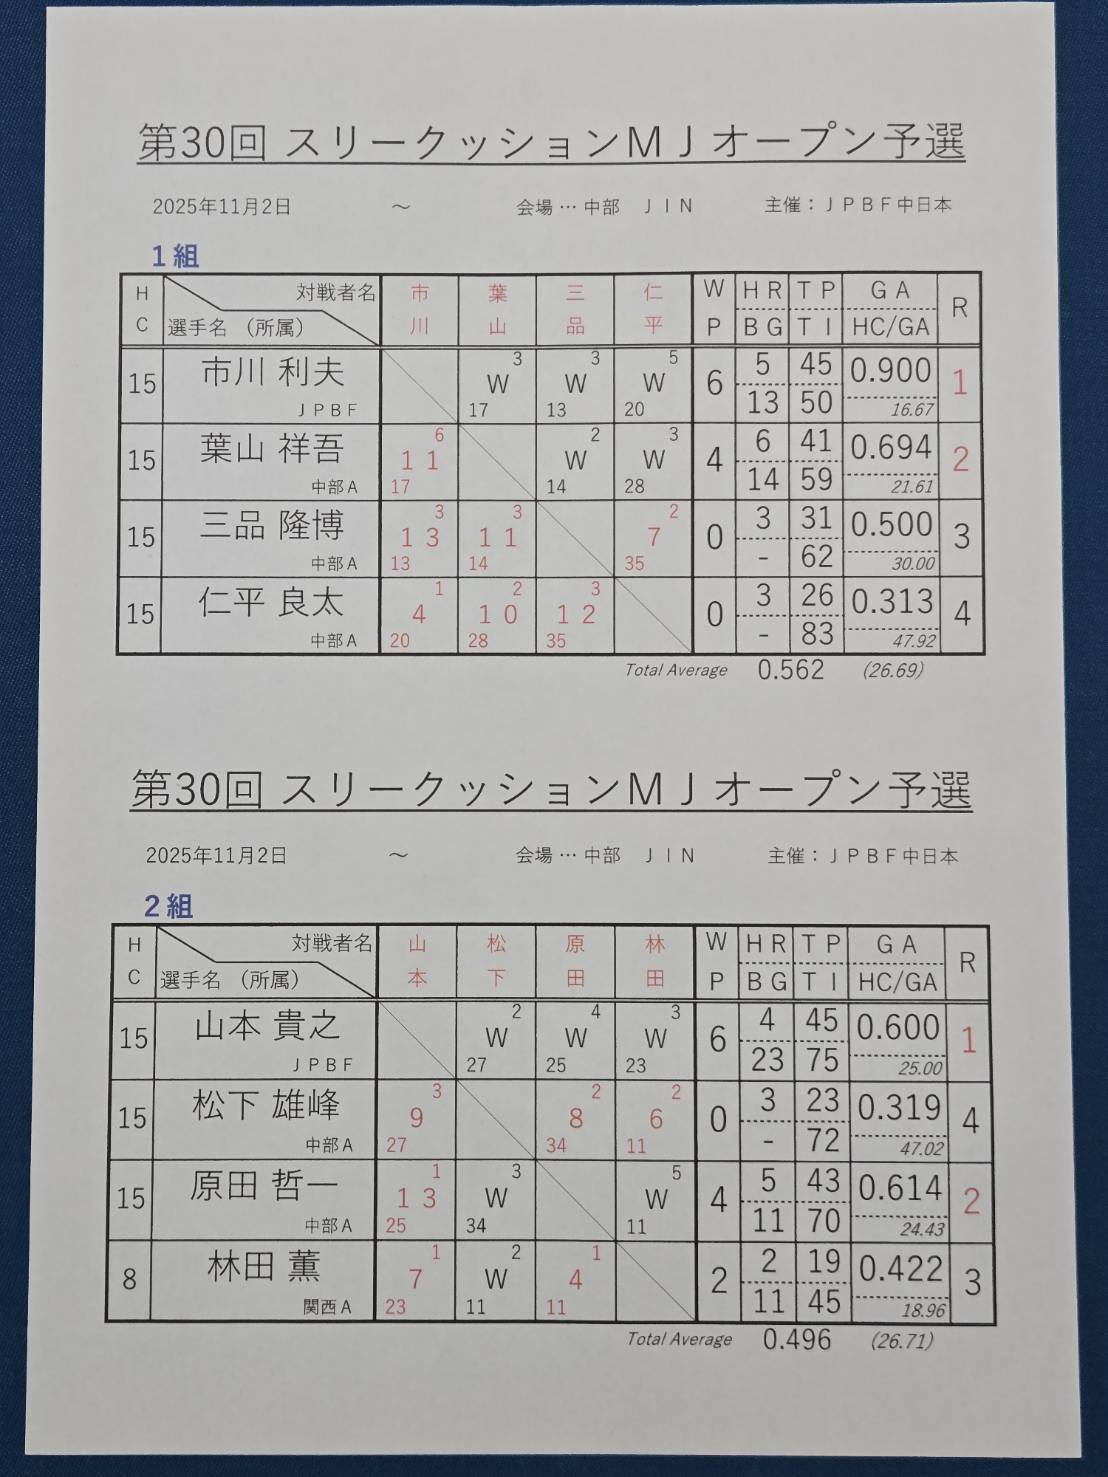 第30回 スリークッションMJオープン予選
2025年11月2日 ～ 会場…中部 JIN 主催：JPBF中日本
1組
HC 対戦者名 選手名 (所属) 市川 葉山 三品 仁平 WP HR BG TP TI GA HC/GA R
3 3 5 5 45
15 市川 利夫 W W W 6 0.900 1
JPBF 17 13 20 13 50 16.67
6 2 3 6 41
15 葉山 祥吾 11 W W 4 0.694 2
中部A 17 14 28 14 59 21.61
3 3 2 3 31
15 三品 隆博 13 11 7 0 0.500 3
中部A 13 14 35 - 62 30.00
1 2 3 3 26
15 仁平 良太 4 10 12 0 0.313 4
中部A 20 28 35 - 83 47.92
Total Average 0.562 (26.69)
第30回 スリークッションMJオープン予選
2025年11月2日 ～ 会場…中部 JIN 主催：JPBF中日本
2組
HC 対戦者名 選手名 (所属) 山本 松下 原田 林田 WP HR BG TP TI GA HC/GA R
2 4 3 4 45
15 山本 貴之 W W W 6 0.600 1
JPBF 27 25 23 23 75 25.00
3 2 2 3 23
15 松下 雄峰 9 8 6 0 0.319 4
中部A 27 34 11 - 72 47.02
1 3 5 5 43
15 原田 哲一 13 W W 4 0.614 2
中部A 25 34 11 11 70 24.43
1 2 1 2 19
8 林田 薫 7 W 4 2 0.422 3
関西A 23 11 11 11 45 18.96
Total Average 0.496 (26.71)